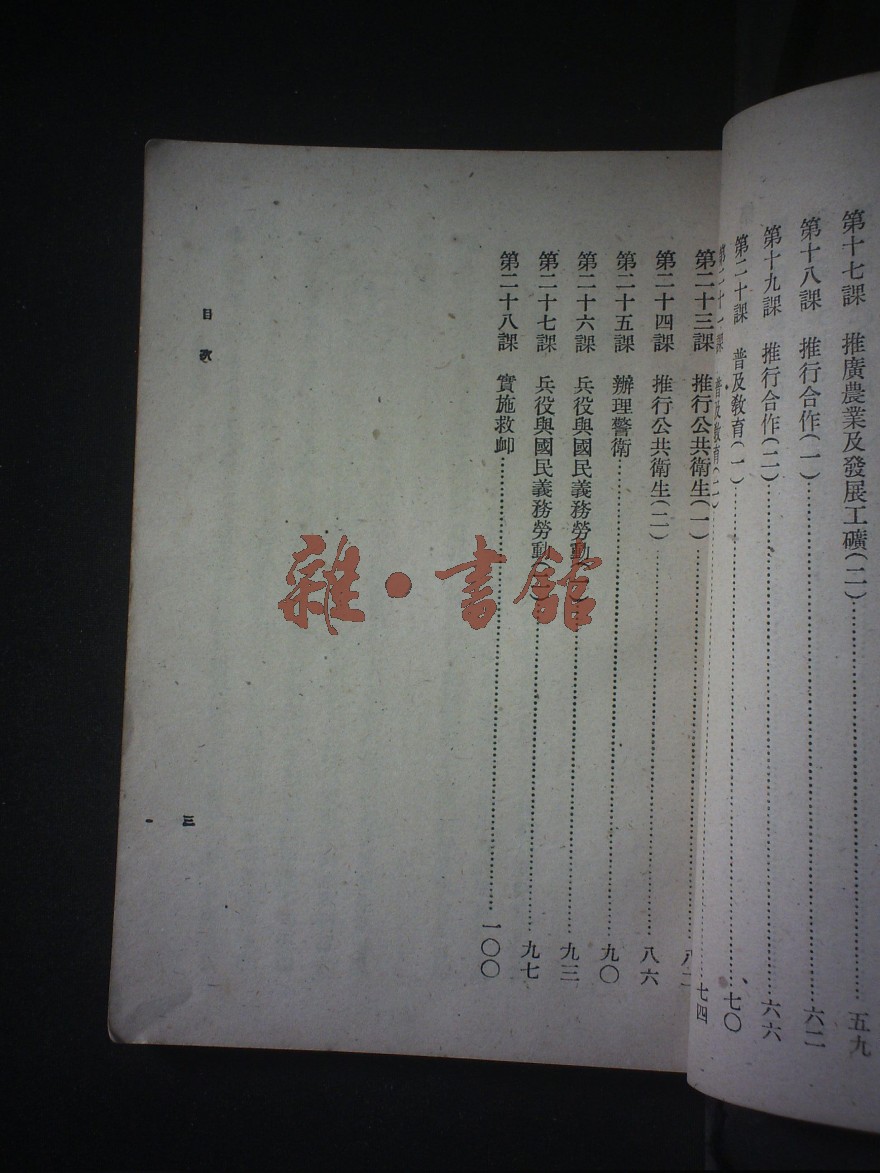 第十七課　推廣農業及發展工礦(二)……五九
第十八課　推行合作(一)……六二
第十九課　推行合作(二)……六六
第二十課　普及教育(一)……七〇
第二十一課　普及教育(二)……七四
第二十三課　推行公共衛生(一)……八二
第二十四課　推行公共衛生(二)……八六
第二十五課　辦理警衛……九〇
第二十六課　兵役與國民義務勞動(一)……九三
第二十七課　兵役與國民義務勞動(二)……九七
第二十八課　實施救卹……一〇〇
目次
三
一
雜·書館